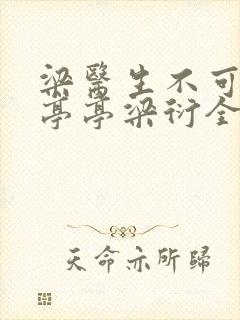 梁醫生不可
亭亭梁衍全
天命亦所歸